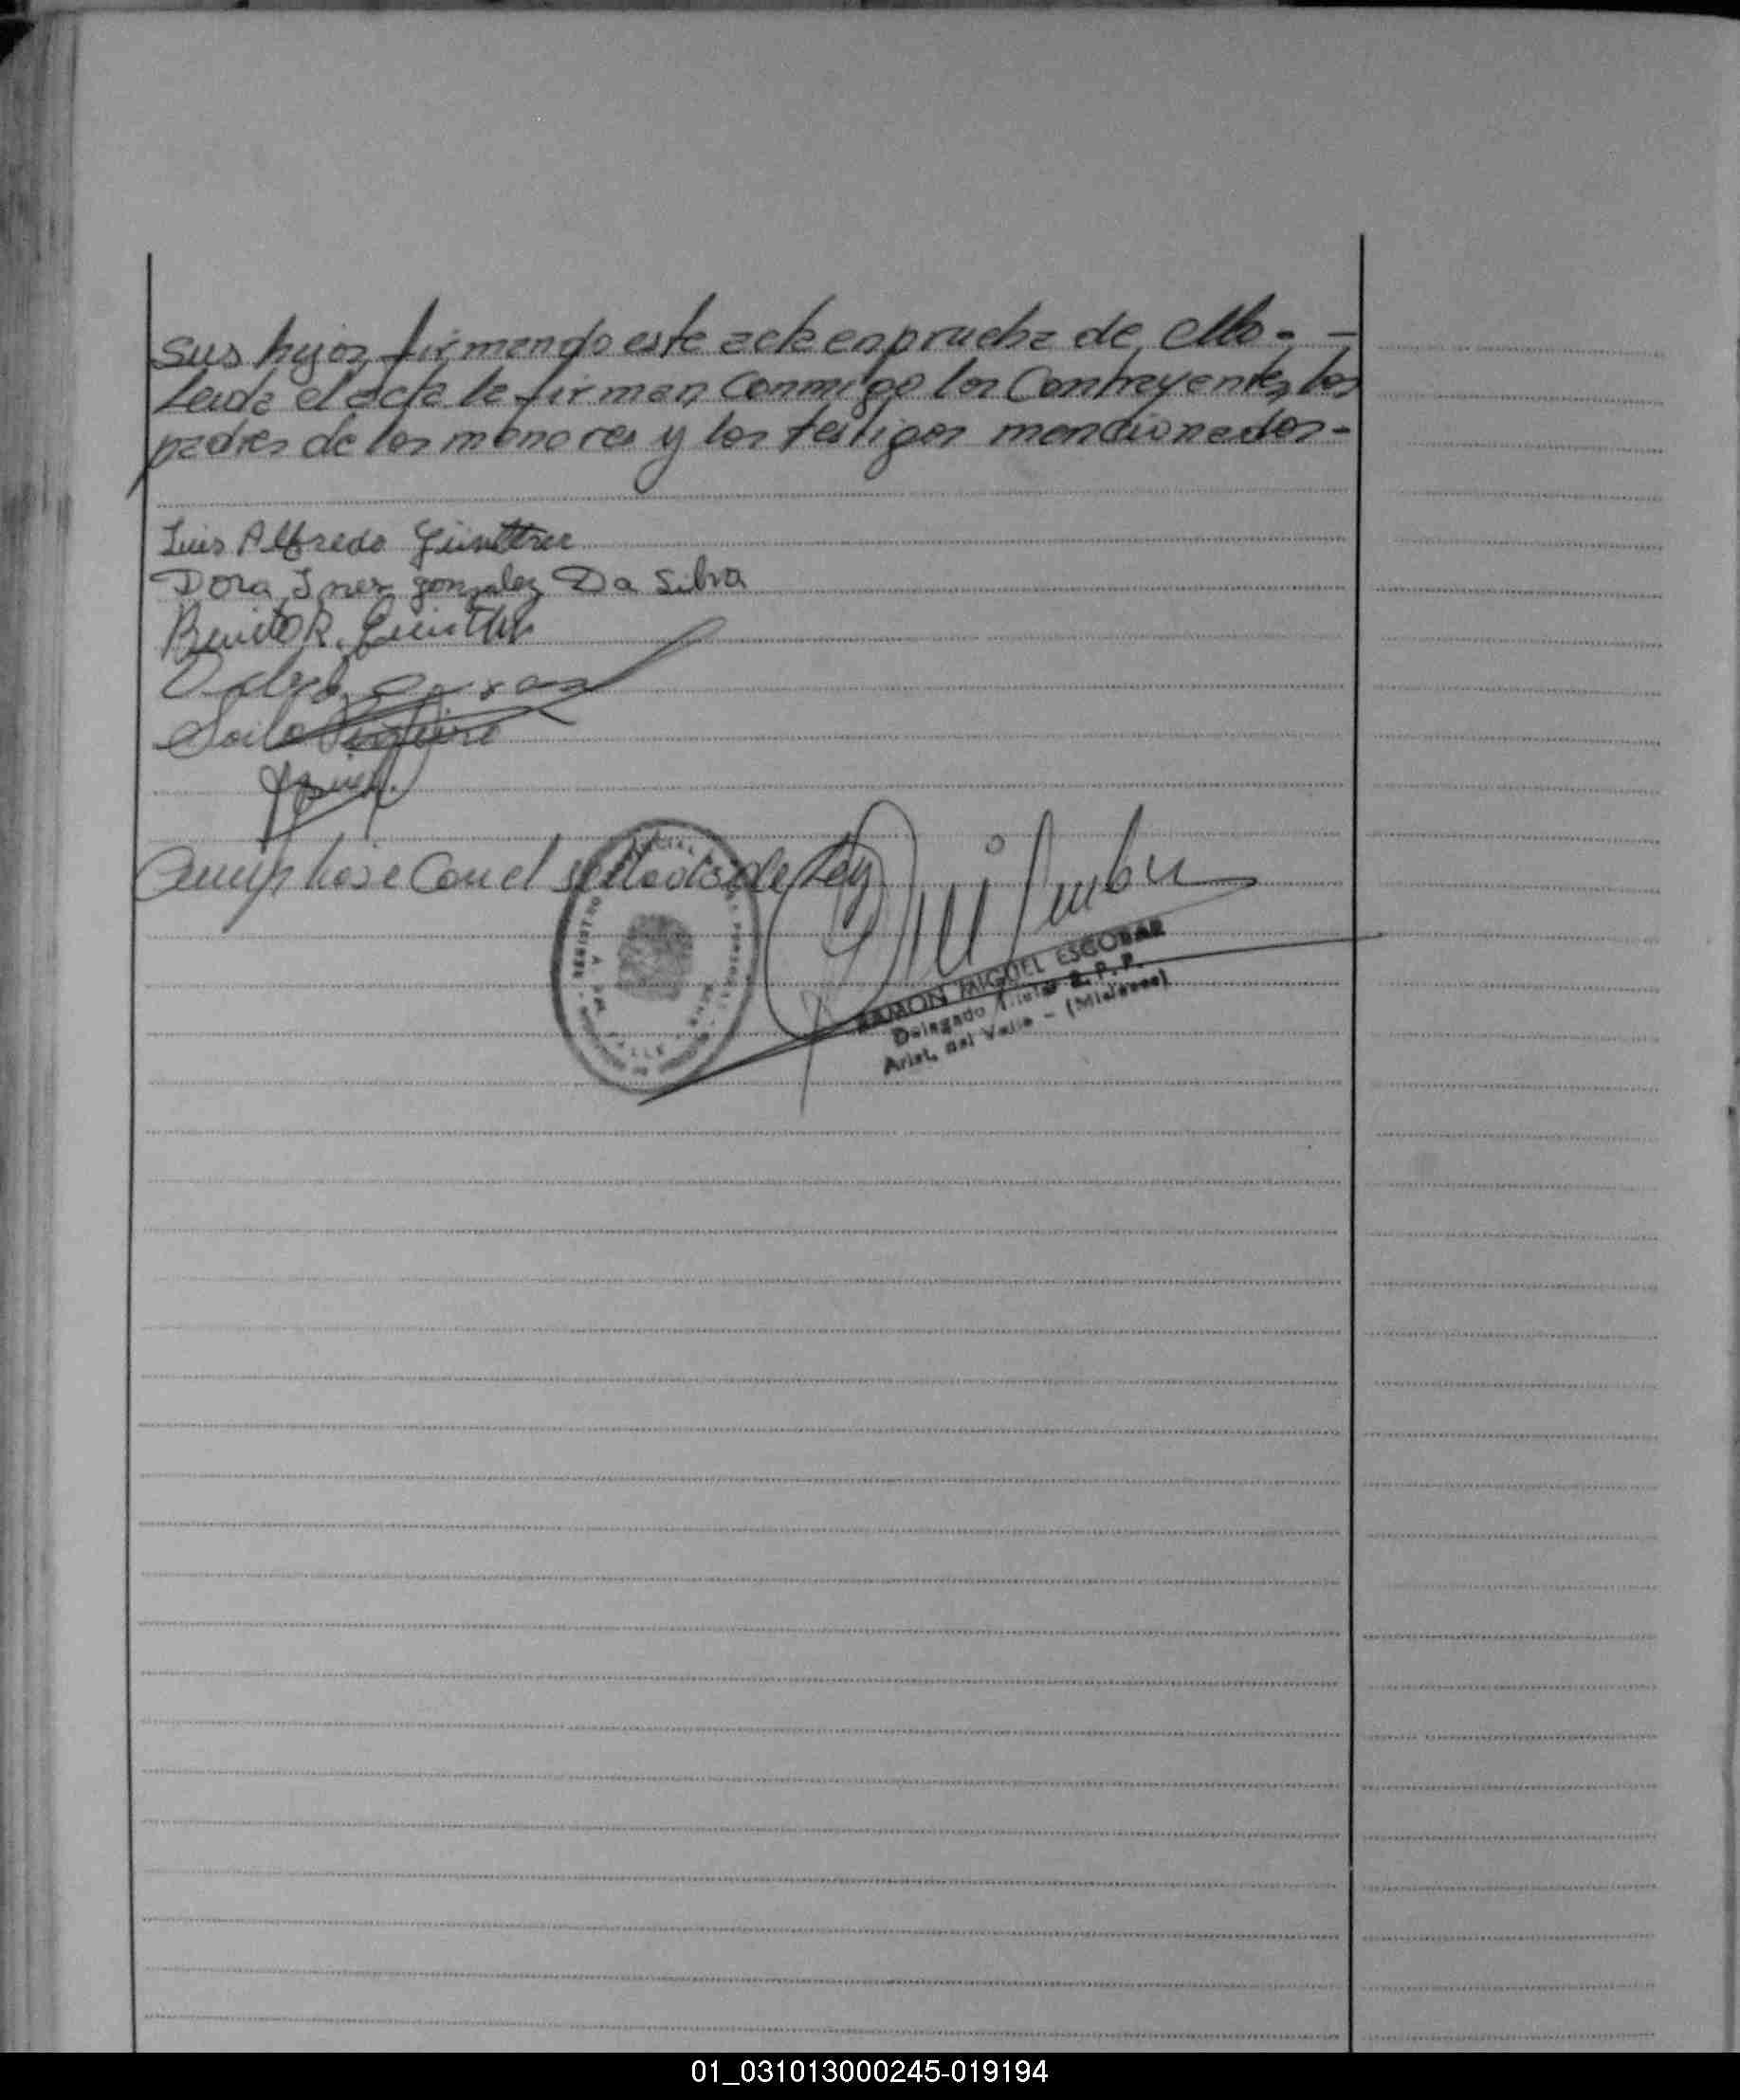 sus hijos, firmando este acta en prueba de ello. -
Leida el acta la firman conmigo los Contrayentes, los
padres de los menores y los testigos mencionados-
Luis Alfredo Günther
Dora Ines gonzalez Da Silva
Benito R. Günther
Cumplióse Con el sellado de Ley
REGISTRO
VALLE
RAMON MIGUEL ESCOBAR
Delegado Titular R. P. P.
Arist. del Valle - (Misiones)
01_031013000245-019194